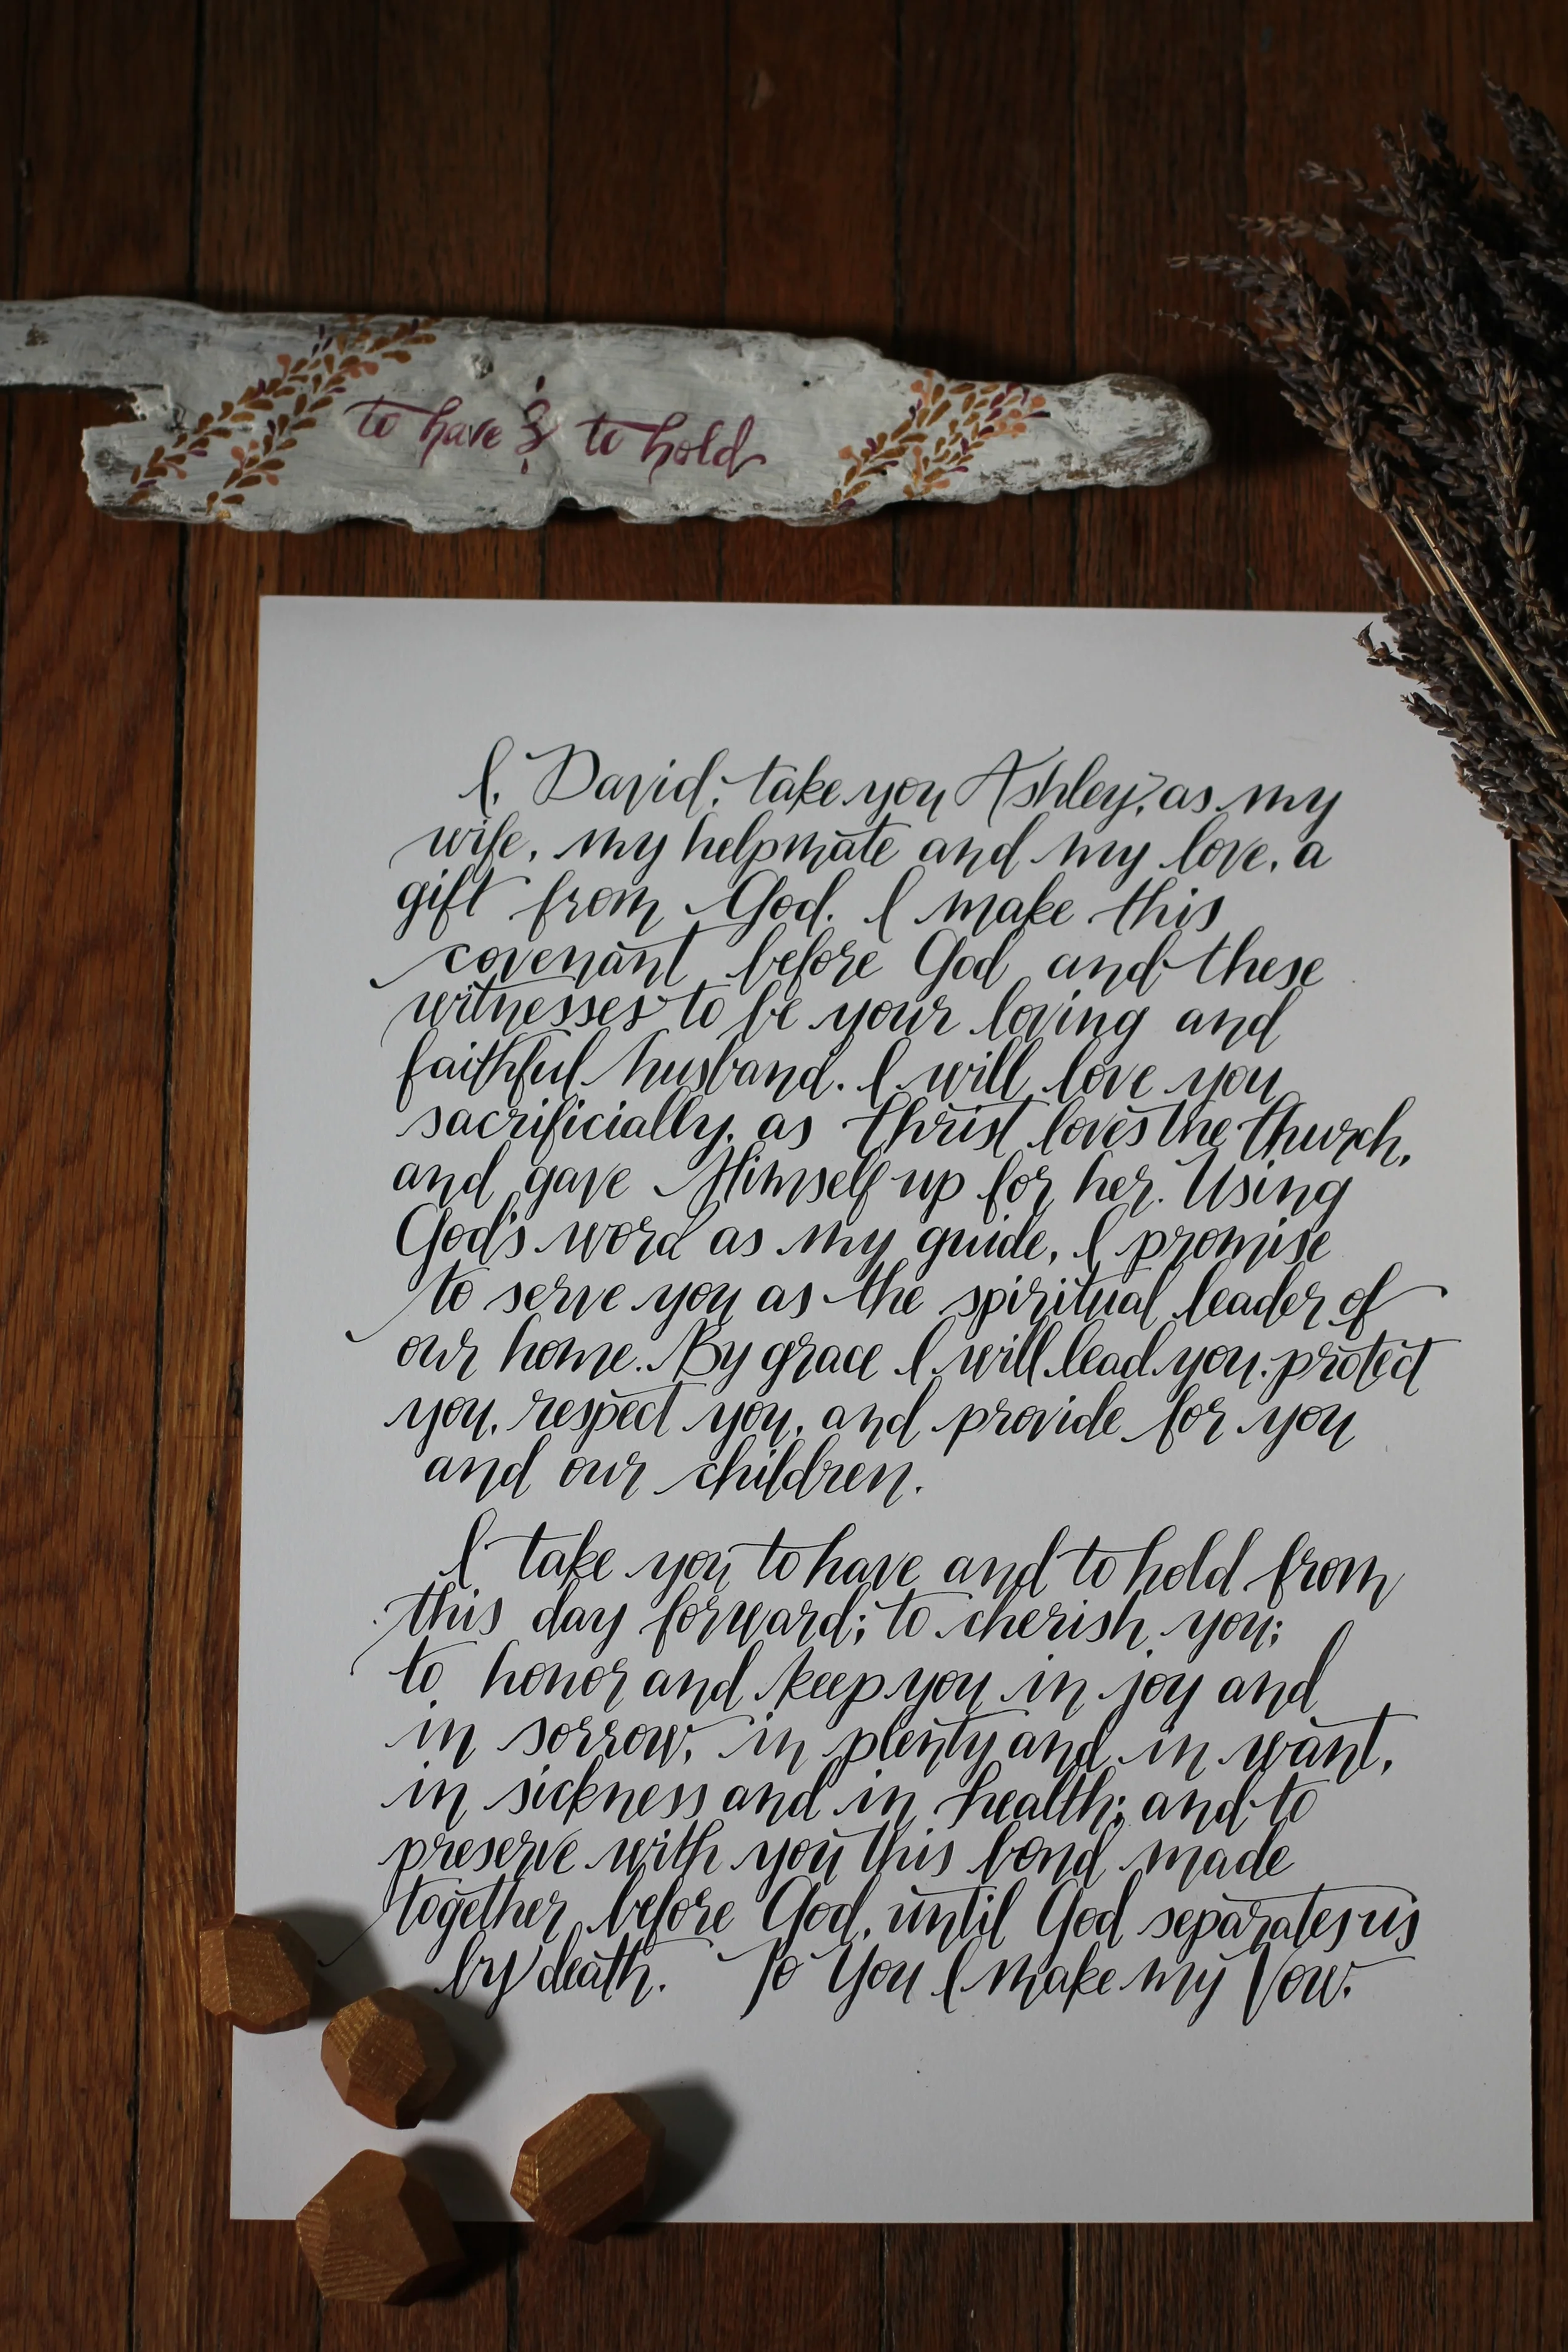 to have & to hold
I, David, take you Ashley, as my
wife, my helpmate and my love, a
gift from God. I make this
covenant before God and these
witnesses to be your loving and
faithful husband. I will love you
sacrificially, as Christ loves the Church,
and gave Himself up for her. Using
God's word as my guide, I promise
to serve you as the spiritual leader of
our home. By grace I will lead you, protect
you, respect you, and provide for you
and our children.
I take you to have and to hold from
this day forward; to cherish you;
to honor and keep you in joy and
in sorrow, in plenty and in want,
in sickness and in health; and to
preserve with you this bond made
together before God, until God separates us
by death. To You I Make my Vow.